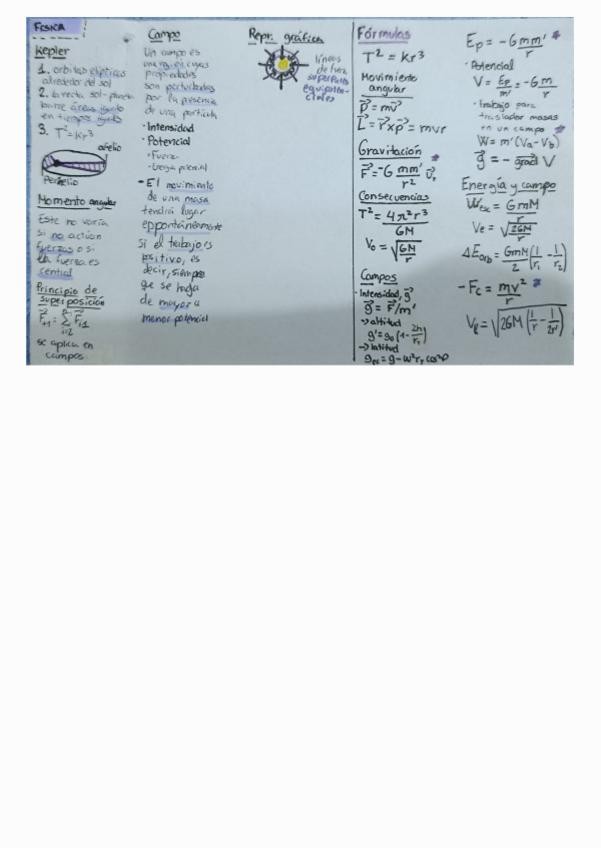 FÍSICA
Kepler
1. orbitas elípticas
alrededor del sol
2. la recta sol-planeta
barre áreas iguales
en tiempos iguales
3. T² = kr³
afelio
Perihelio
Momento angular
Este no varía
si no actúan
fuerzas o si
la fuerza es
central
Principio de
superposición
se aplica en
campos
Campo
Un campo es
una región cuyas
propiedades
son perturbadas
por la presencia
de una partícula
· Intensidad
· Potencial
- Fuerza
- Energía potencial
- El movimiento
de una masa
tendrá lugar
eppontáneamente
si el trabajo es
positivo, es
decir, siempre
que se haga
de mayor a
menor potencial
Repr. gráfica
líneas
de fuerza
superficies
equipoten-
ciales
Fórmulas
T² = kr³
Movimiento
angular
p⃗ = mv⃗
L⃗ = r⃗ x p⃗ = mvr
Gravitación
F⃗ = -G mm'/r² u⃗r
Consecuencias
T² = 4π²r³/GM
Vo = √(GM/r)
Campos
· Intensidad, g⃗
g⃗ = F⃗/m'
→ altitud
g' = g₀(1 - 2h/rT)
→ latitud
Ep = -G mm'/r *
· Potencial
V = Ep/m' = -G m/r
· trabajo para
trasladar masas
en un campo *
W = m'(Va - Vb)
g⃗ = - grad V
Energía y campo
Wesc = GmM/r
Ve = √(2GM/r)
ΔEorb = GmM/2 (1/r₁ - 1/r₂)
- Fc = mv²/r *
Vl = √(2GM(1/r - 1/2r'))